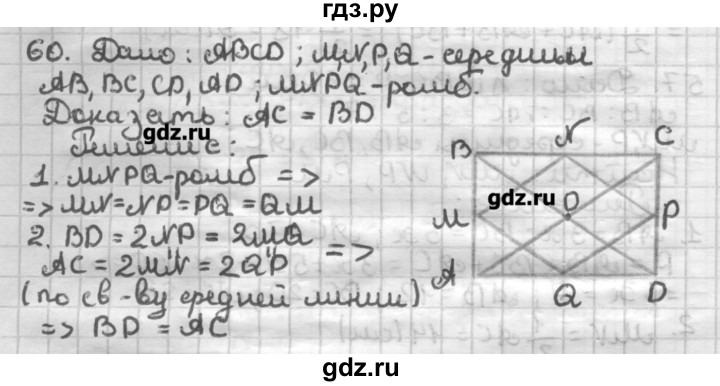 гдз.ру
60. Дано: ABCD; M,N,P,Q - середины
AB, BC, CD, AD; MNPQ - ромб.
Доказать: AC = BD
gdz.ru
Решение:
1. MNPQ - ромб =>
=> MN = NP = PQ = QM
2. BD = 2NP = 2MQ
AC = 2MN = 2QP
=>
(по св-ву средней линии)
=> BD = AC
B N C
gdz.ru
O
M P
A Q D
gdz.ru